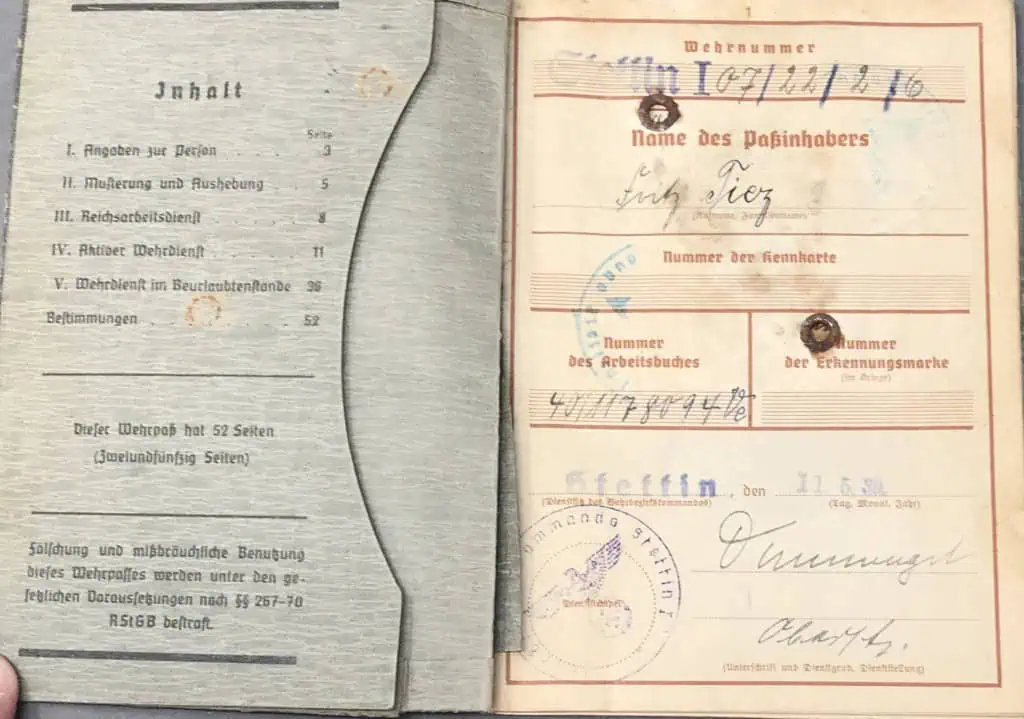 Inhalt
Seite
I. Angaben zur Person . . . . 3
II. Musterung und Aushebung . . 5
III. Reichsarbeitsdienst . . . . 8
IV. Aktiver Wehrdienst . . . . 11
V. Wehrdienst im Beurlaubtenstande 36
Bestimmungen . . . . 52
Dieser Wehrpaß hat 52 Seiten
(Zweiundfünfzig Seiten)
Fälschung und mißbräuchliche Benutzung
dieses Wehrpasses werden unter den ge-
setzlichen Voraussetzungen nach §§ 267-70
RStGB bestraft.
1
Wehrnummer
Stettin I 07/22/2/6
Name des Paßinhabers
Fritz Tiez
(Rufname, Familienname)
Nummer der Kennkarte
Nummer
des Arbeitsbuches
Nummer
der Erkennungsmarke
(im Kriege)
Stettin, den 11.5.
(Dienstsitz des Wehrbezirkskommandos)
(Tag, Monat, Jahr)
ommando Stettin I
Dienststempel
(Unterschrift und Dienstgrad, Dienststellung)